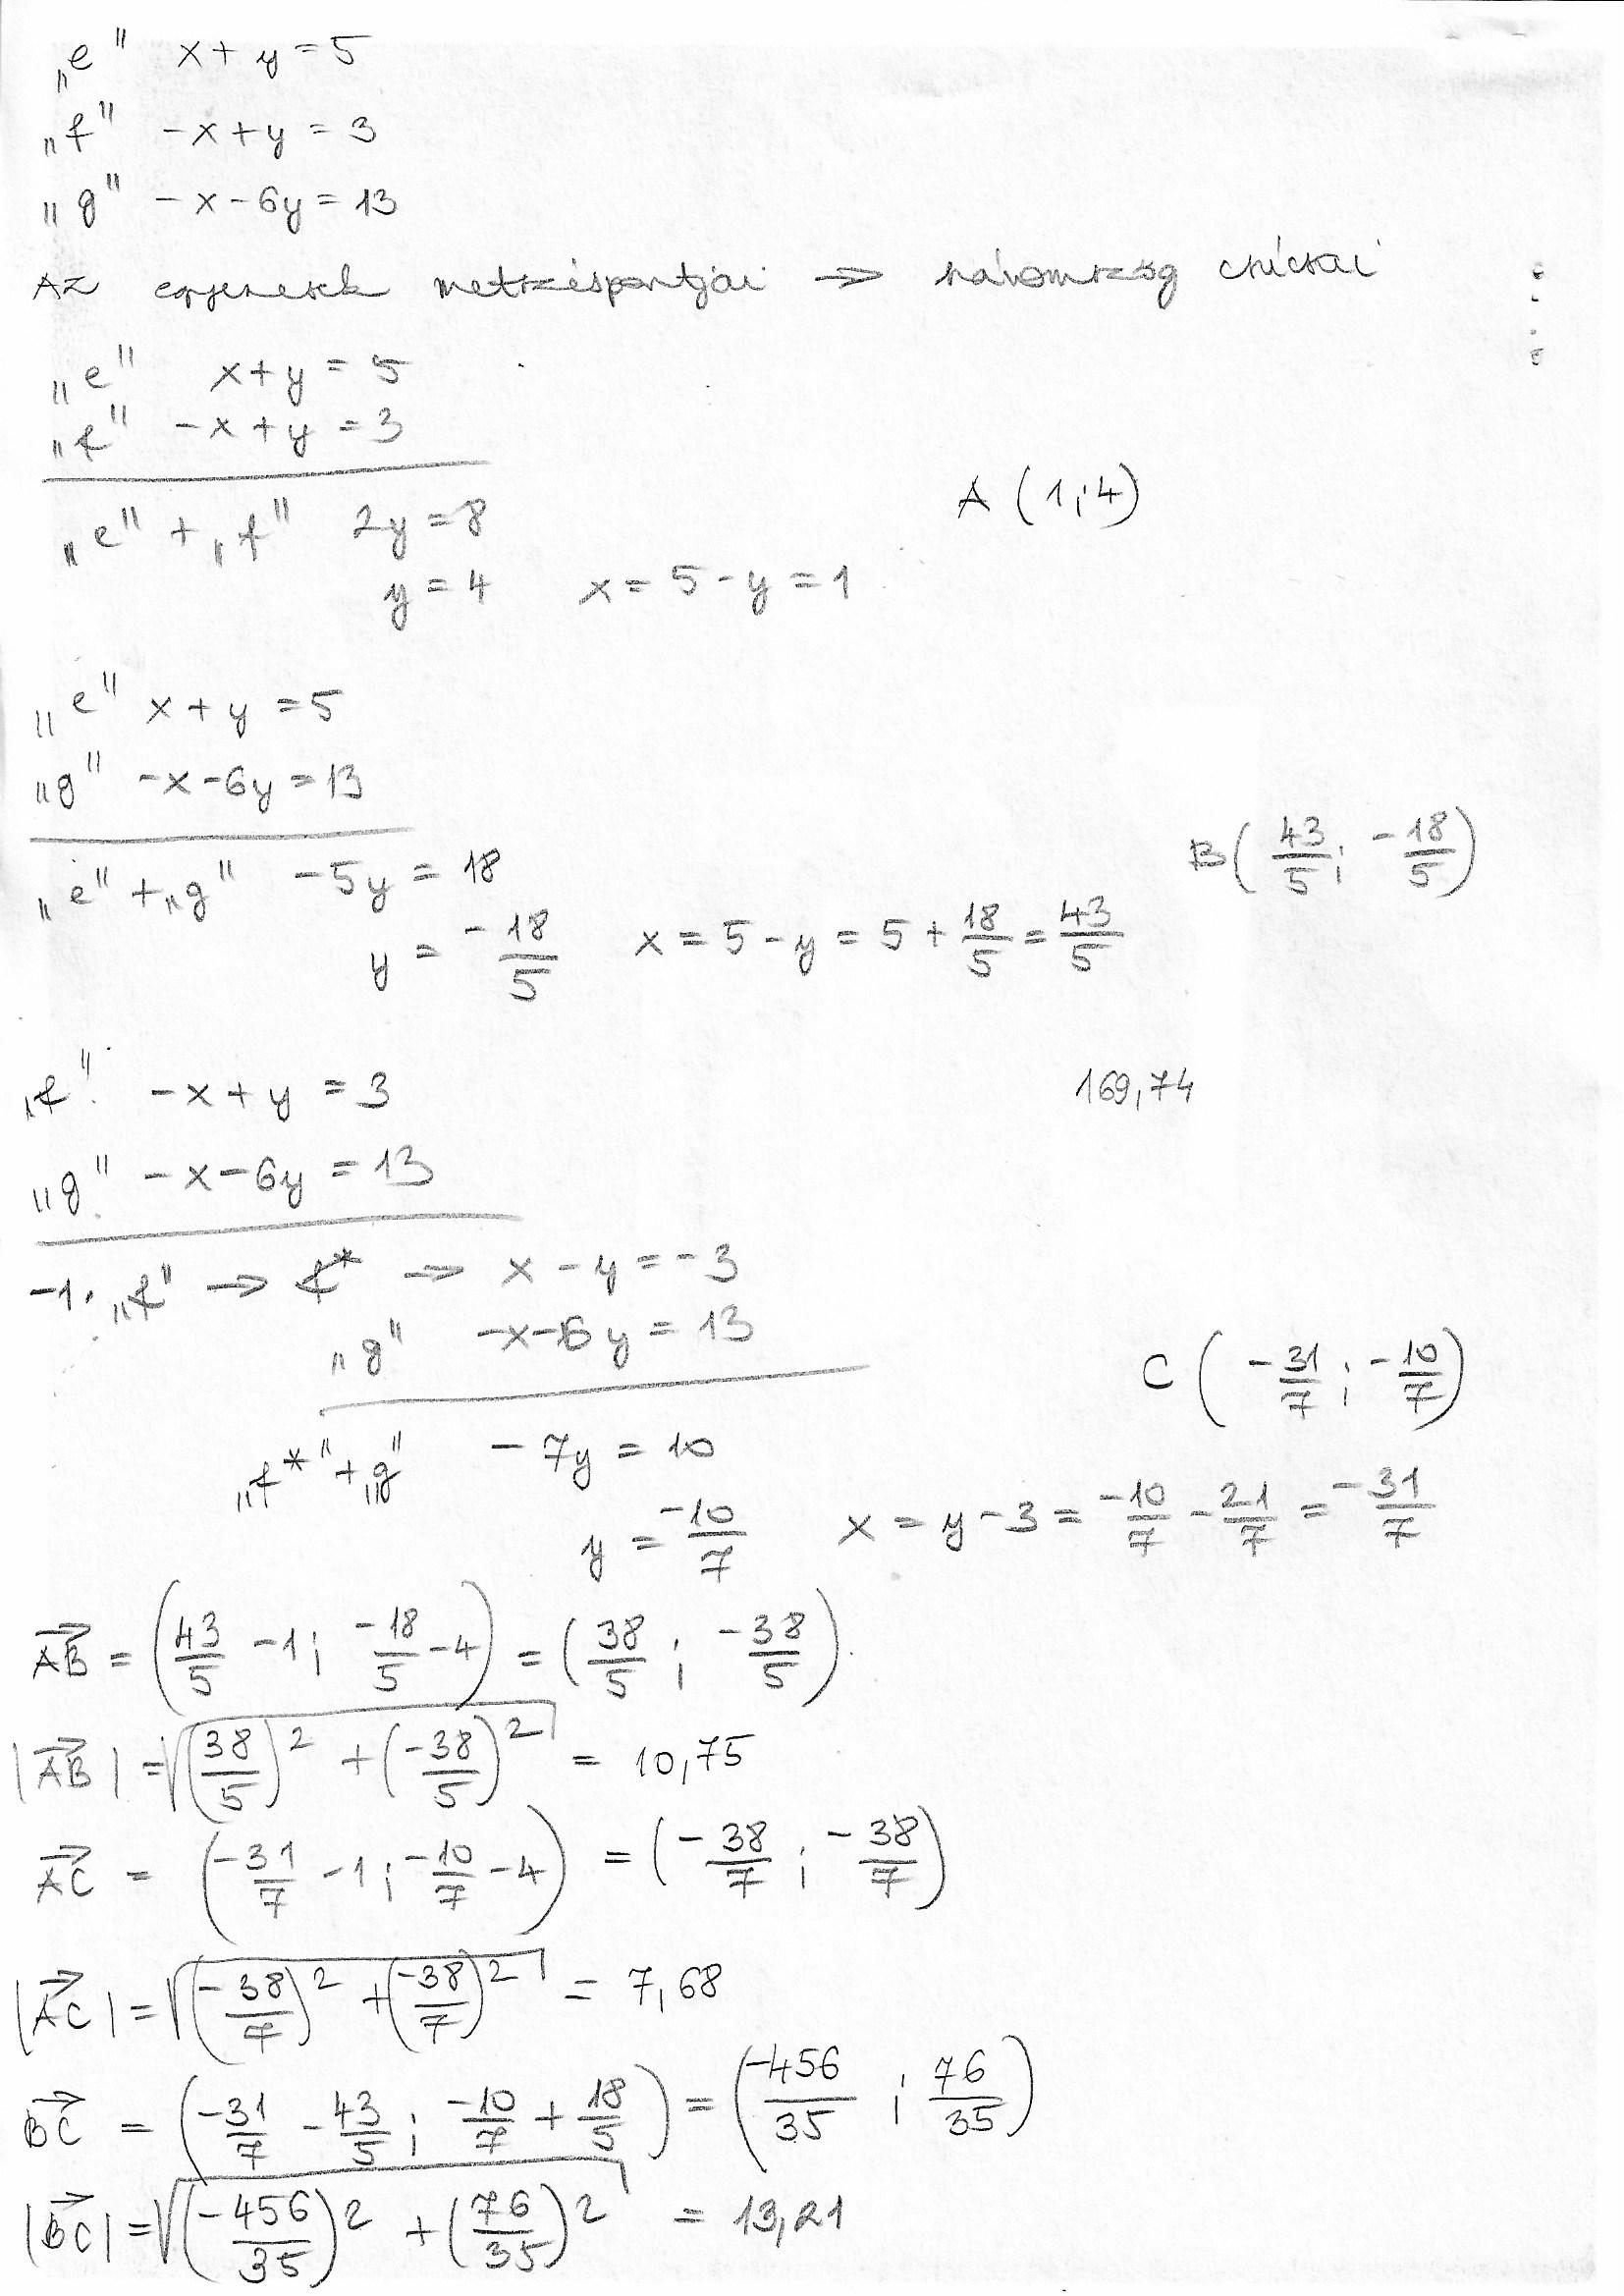 „e" x+y=5
„f" -x+y=3
„g" -x-6y=13
Az egyenesek metszéspontjai → háromszög csúcsai
„e" x+y=5
„f" -x+y=3
„e"+„f" 2y=8
A(1;4)
y=4 x=5-y=1
„e" x+y=5
„g" -x-6y=13
„e"+„g" -5y=18
B(43/5; -18/5)
y=-18/5 x=5-y=5+18/5=43/5
„f" -x+y=3
169,74
„g" -x-6y=13
-1·„f" → f* → x-y=-3
„g" -x-6y=13
C(-31/7; -10/7)
„f*"+„g" -7y=10
y=-10/7 x=y-3=-10/7-21/7=-31/7
AB=(43/5-1; -18/5-4)=(38/5; -38/5)
|AB|=√((38/5)²+(-38/5)²)=10,75
AC=(-31/7-1; -10/7-4)=(-38/7; -38/7)
|AC|=√((-38/7)²+(-38/7)²)=7,68
BC=(-31/7-43/5; -10/7+18/5)=(-456/35; 76/35)
|BC|=√((-456/35)²+(76/35)²)=13,21